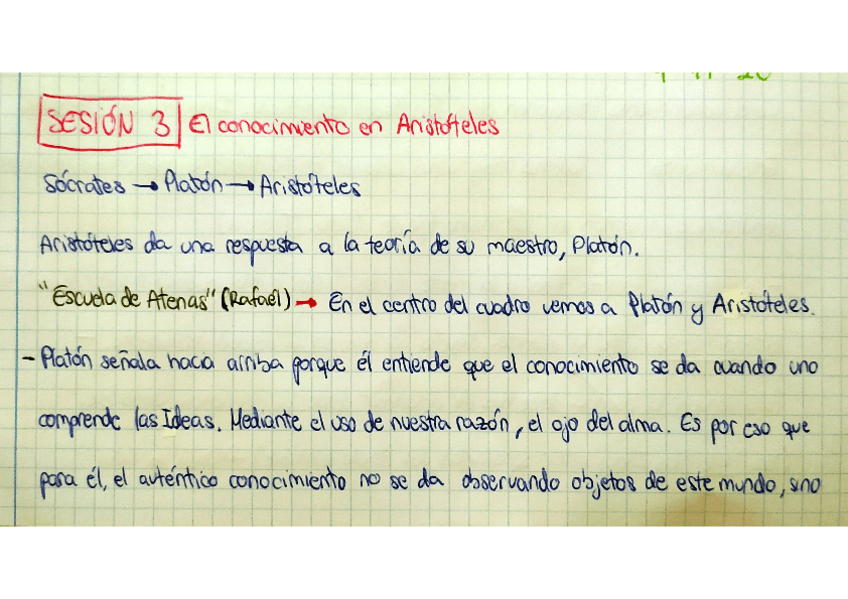 SESIÓN 3 El conocimiento en Aristóteles
Sócrates → Platón → Aristóteles
Aristóteles da una respuesta a la teoría de su maestro, Platón.
"Escuela de Atenas" (Rafael) → En el centro del cuadro vemos a Platón y Aristóteles.
- Platón señala hacia arriba porque él entiende que el conocimiento se da cuando uno
comprende las Ideas. Mediante el uso de nuestra razón, el ojo del alma. Es por eso que
para él, el auténtico conocimiento no se da observando objetos de este mundo, sino